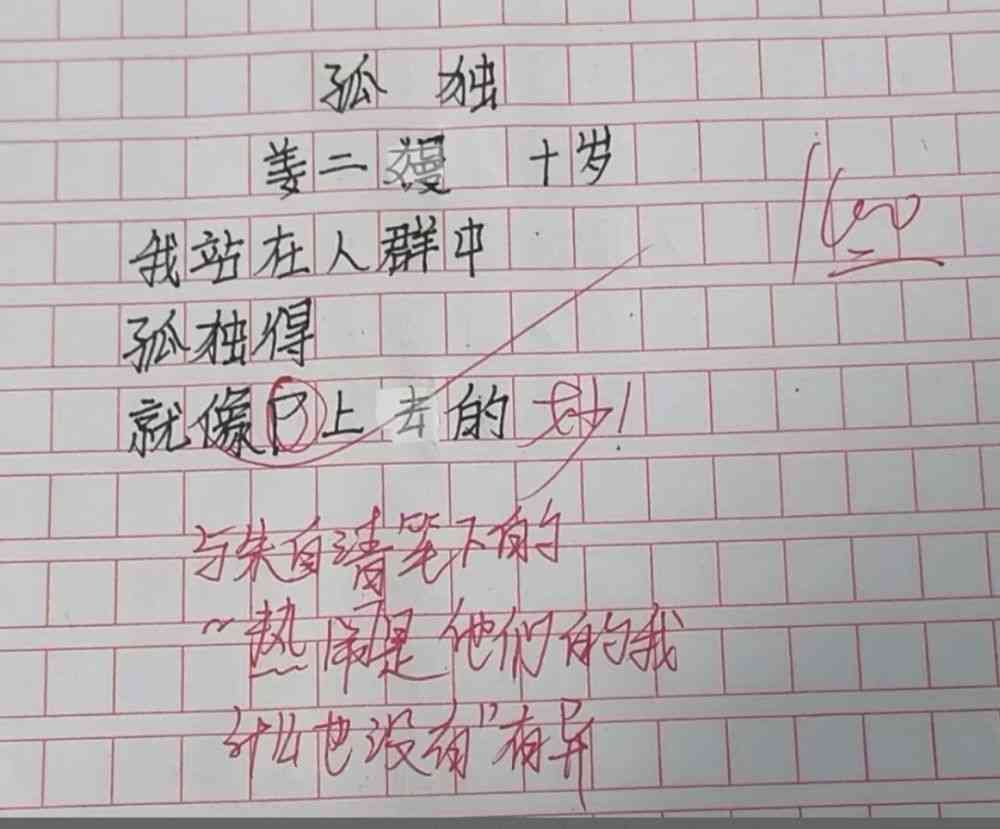 孤 独
姜二嫚 十岁
我站在人群中
孤独得
就像P上去的 妙!
100
与朱自清笔下的
“热闹是他们的我
什么也没有”有异